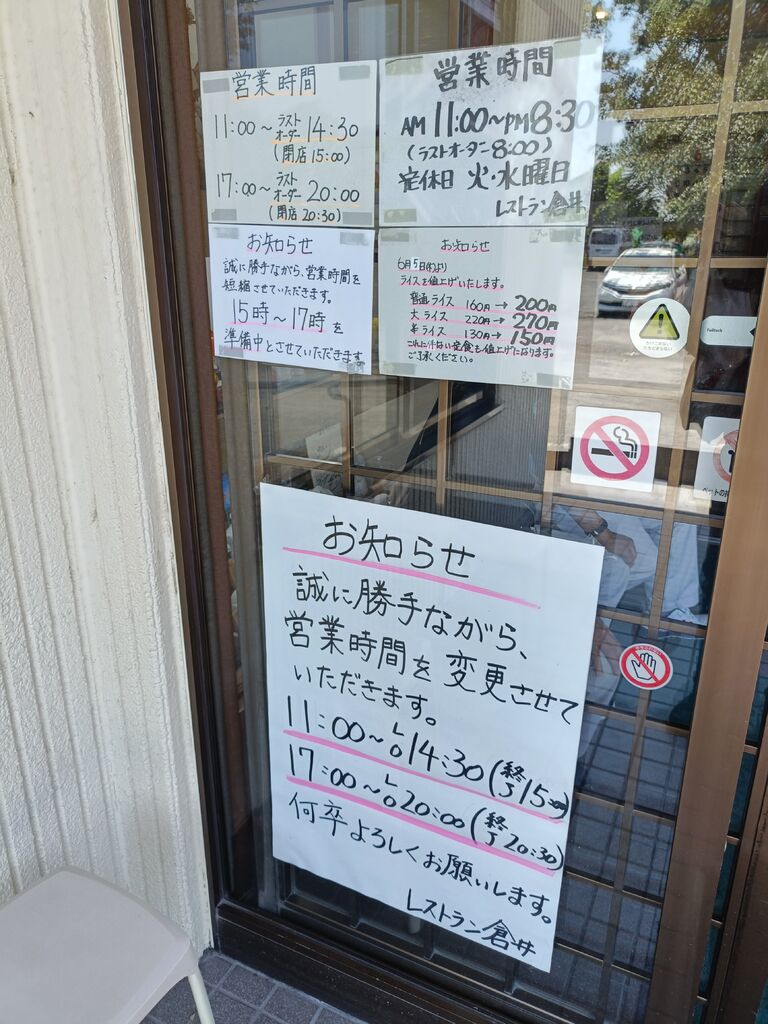 営業時間
11:00～ラストオーダー14:30
(閉店15:00)
17:00～ラストオーダー20:00
(閉店20:30)
営業時間
AM 11:00～PM8:30
(ラストオーダー8:00)
定休日 火・水曜日
レストラン倉井
お知らせ
誠に勝手ながら、営業時間を
短縮させていただきます。
15時～17時を
準備中とさせていただきます
お知らせ
6月5日(木)より
ライスを値上げいたします。
普通ライス 160円→200円
大ライス 220円→270円
半ライス 130円→150円
これに伴い定食も値上げになります。
ご了承ください。
お知らせ
誠に勝手ながら、
営業時間を変更させて
いただきます。
11:00～LO14:30(終了15:00)
17:00～LO20:00(終了20:30)
何卒よろしくお願いします。
レストラン倉井